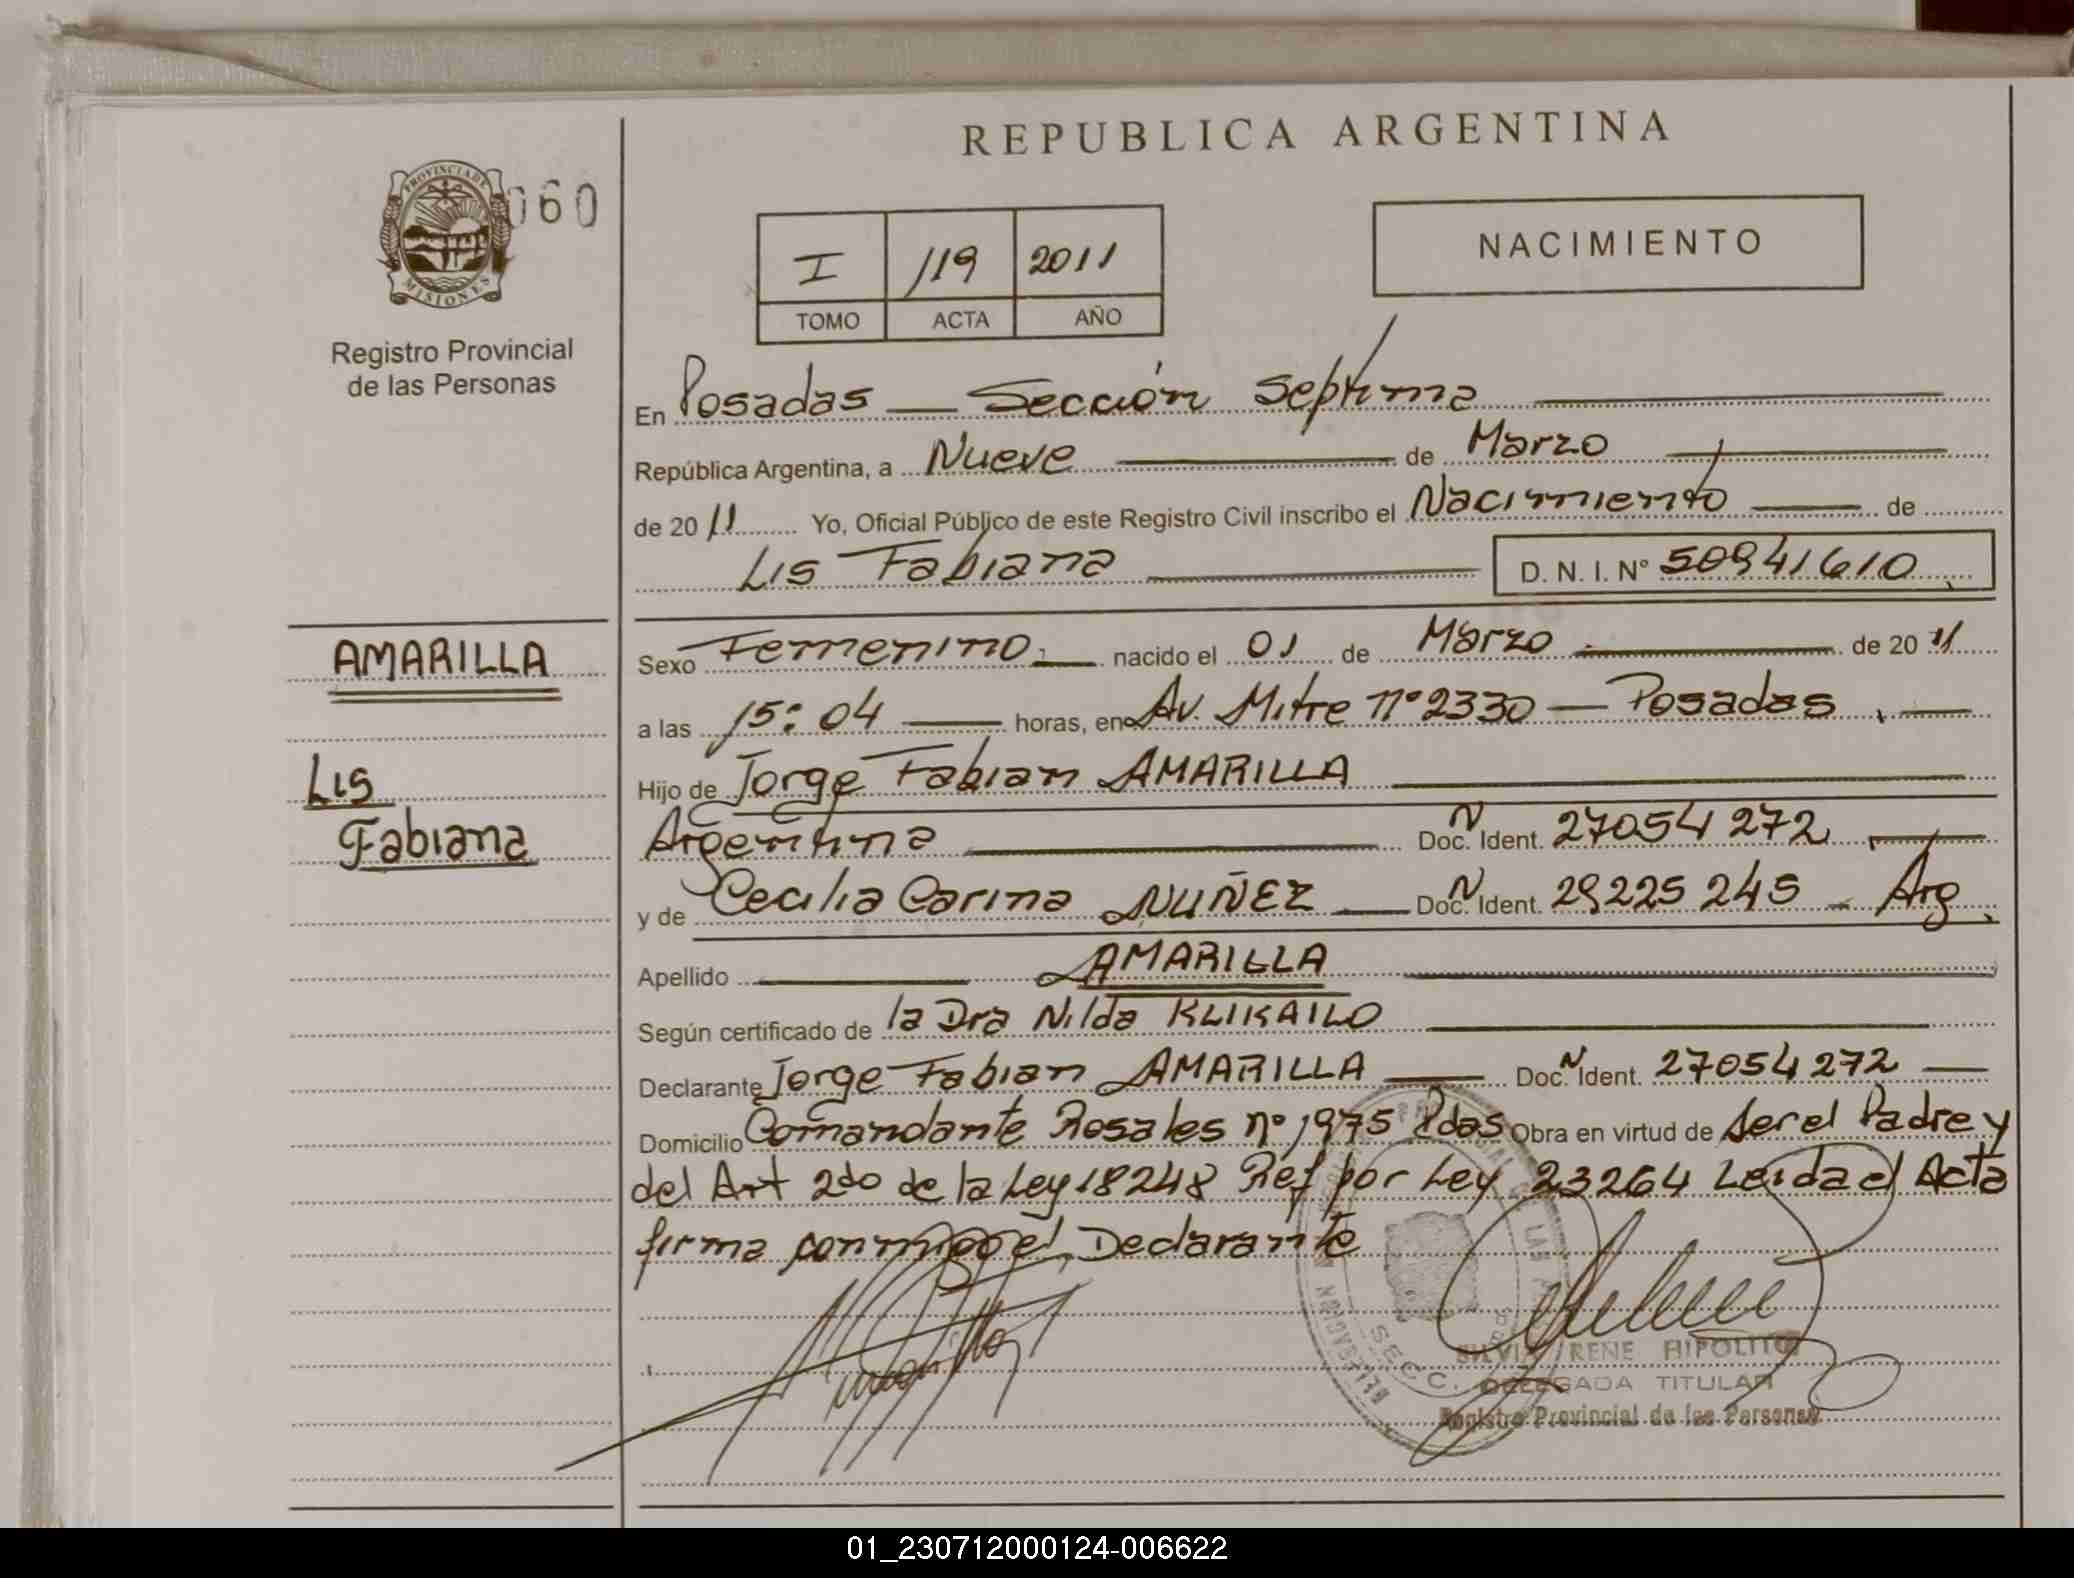 REPUBLICA ARGENTINA
PROVINCIA DE
MISIONES
060
Registro Provincial
de las Personas
I 119 2011
TOMO ACTA AÑO
NACIMIENTO
En Posadas — Sección Septima
República Argentina, a Nueve de Marzo
de 2011 Yo, Oficial Público de este Registro Civil inscribo el Nacimiento de
Lis Fabiana D. N. I. N° 50941610
AMARILLA
Lis
Fabiana
Sexo Femenino nacido el 01 de Marzo de 2011
a las 15:04 horas, en Av. Mitre n° 2330 — Posadas
Hijo de Jorge Fabian AMARILLA
Argentina Doc. N Ident. 27054272
y de Cecilia Carina NUÑEZ Doc. N Ident. 29225245 - Arg.
Apellido AMARILLA
Según certificado de la Dra Nilda KLIKAILO
Declarante Jorge Fabian AMARILLA Doc. N Ident. 27054272
Domicilio Comandante Rosales n° 1975 Pdas Obra en virtud de Ser el Padre y
del Art 2do de la Ley 18248 Ref por Ley 23264 Leida el Acta
firma conmigo el Declarante
SILVIA IRENE HIPOLITO
DELEGADA TITULAR
Registro Provincial de las Personas
SECC.
01_230712000124-006622